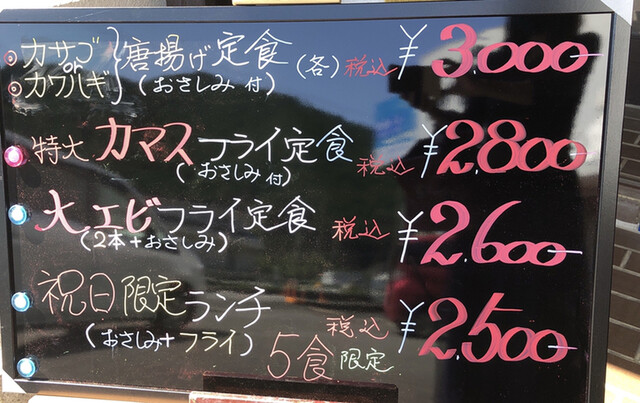 カサゴ or カワハギ 唐揚げ定食 (各) 税込 ¥3.000
(おさしみ付)
特大 カマスフライ定食 税込 ¥2.800
(おさしみ付)
大エビフライ定食 税込 ¥2.600
(2本+おさしみ)
祝日限定ランチ 税込 ¥2.500
(おさしみ+フライ) 5食限定